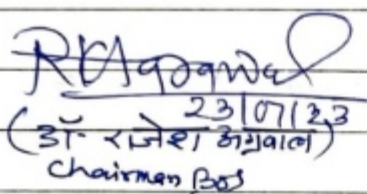 RKAgrawal
23/07/23
(डॉ. राजेश अग्रवाल)
Chairman BOS